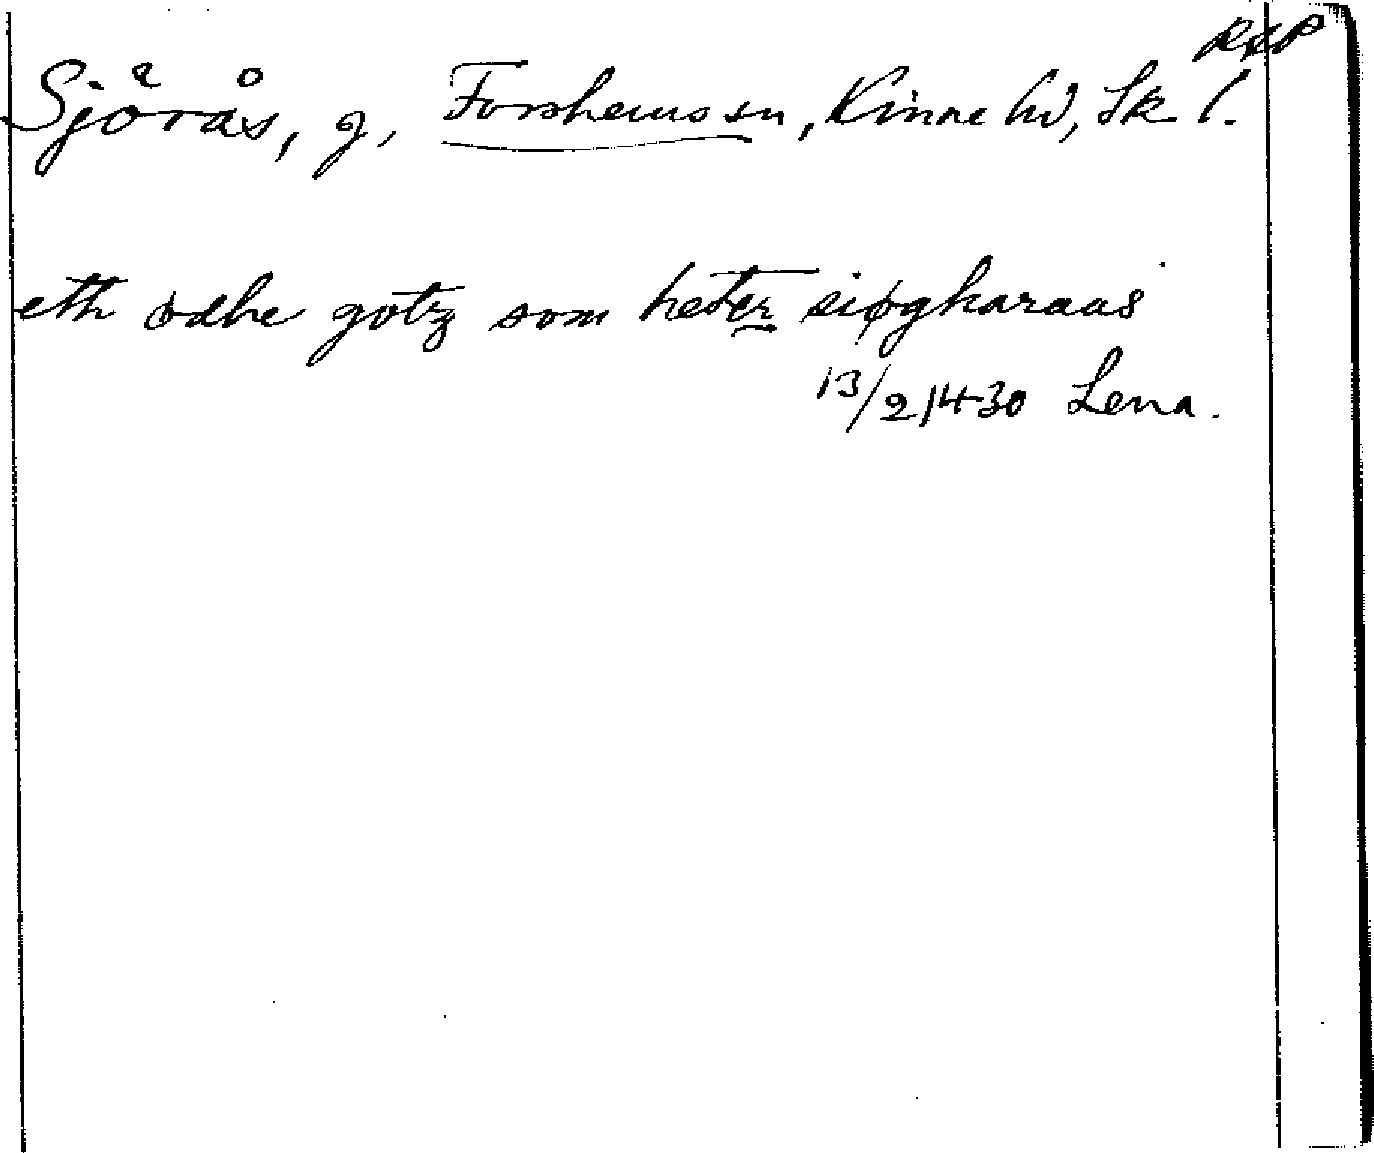 RAP
Sjörås, g, Forshems sn, Kinne hd, Sk l.
eth ødhe gotz som heter siøgharaas
13/2 1430 Lena.